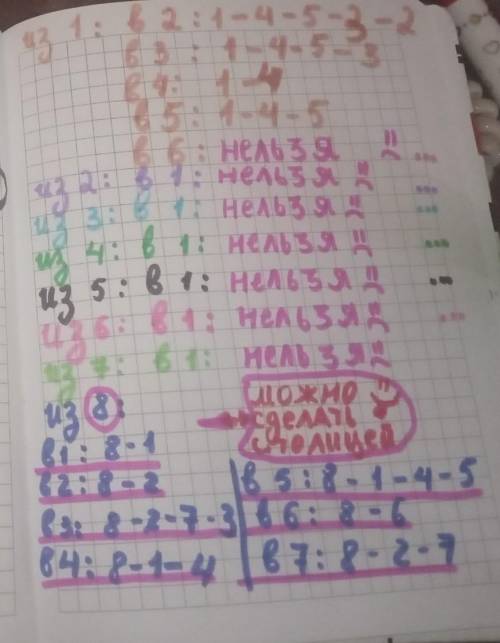 из 1: в 2: 1-4-5-3-2
в 3: 1-4-5-3
в 4: 1-4
в 5: 1-4-5
в 6: нельзя :( ...
из 2: в 1: нельзя :( ...
из 3: в 1: нельзя :( ...
из 4: в 1: нельзя :( ...
из 5: в 1: нельзя :( ...
из 6: в 1: нельзя :( ...
из 7: в 1: нельзя :(
из 8:
можно :)
сделать
столицей
в1: 8-1
в2: 8-2
в3: 8-2-7-3
в4: 8-1-4
в 5: 8-1-4-5
в 6: 8-6
в 7: 8-2-7